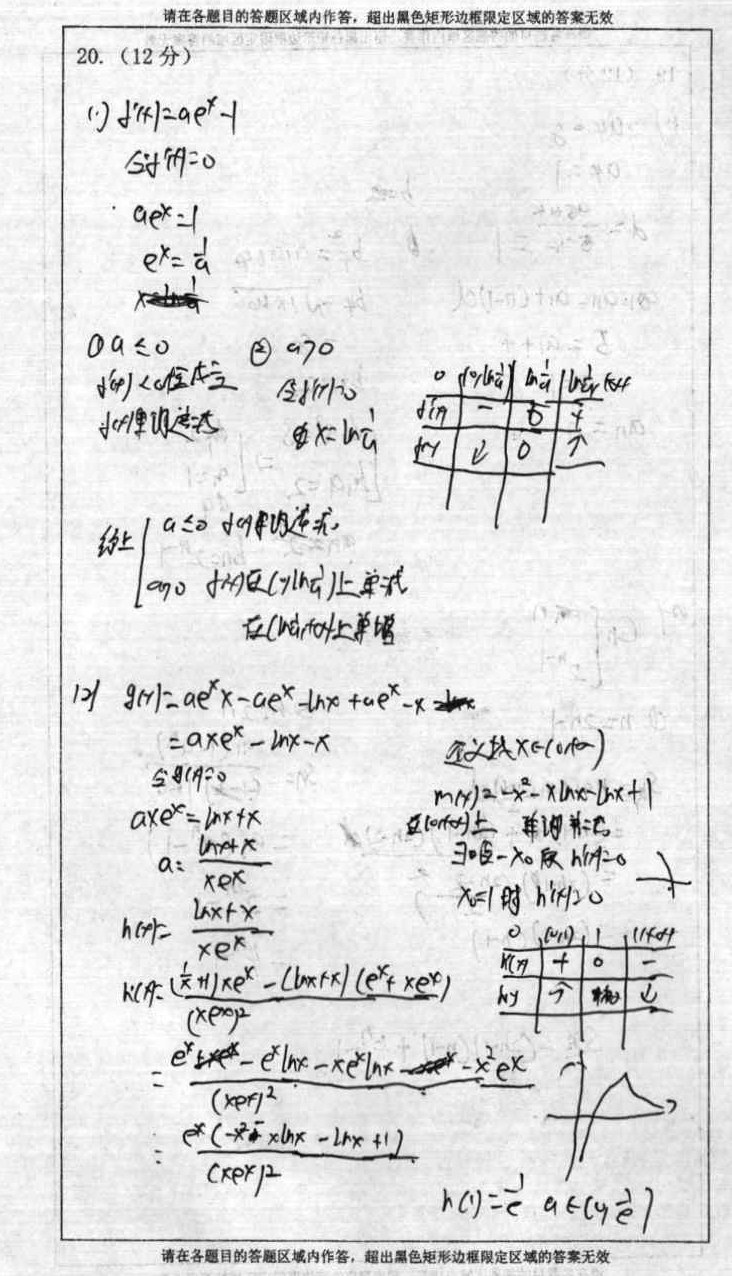 请在各题目的答题区域内作答，超出黑色矩形边框限定区域的答案无效
20.（12分）
(1) f'(x)=ae^x-1
令f'(x)=0
ae^x=1
e^x=1/a
① a≤0
f'(x)<0恒成立
f(x)单调递减
② a>0
令f'(x)=0
x=ln1/a
0 (0,ln1/a) ln1/a (ln1/a,+∞)
f'(x) - 0 +
f(x) ↓ 0 ↑
综上 a≤0 f(x)单调递减
a>0 f(x)在(,ln1/a)上单减
在(ln1/a,+∞)上单增
(2) g(x)=ae^x x-ae^x-lnx+ae^x-x
=axe^x-lnx-x
令g(x)=0
axe^x=lnx+x
a=(lnx+x)/(xe^x)
h(x)=(lnx+x)/(xe^x)
h'(x)=((1/x+1)xe^x-(lnx+x)(e^x+xe^x))/(xe^x)^2
=(e^x-e^x lnx-xe^x lnx-x^2e^x)/(xe^x)^2
=e^x(-x^2-xlnx-lnx+1)/(xe^x)^2
定义域x∈(0,+∞)
m(x)=-x^2-xlnx-lnx+1
在(0,+∞)上 单调递减
∃唯一x0 使h'(x)=0
x0=1时h'(x)=0
0 (0,1) 1 (1,+∞)
h'(x) + 0 -
h(x) ↑ ↓
h(1)=1/e a∈(0,1/e)
请在各题目的答题区域内作答，超出黑色矩形边框限定区域的答案无效